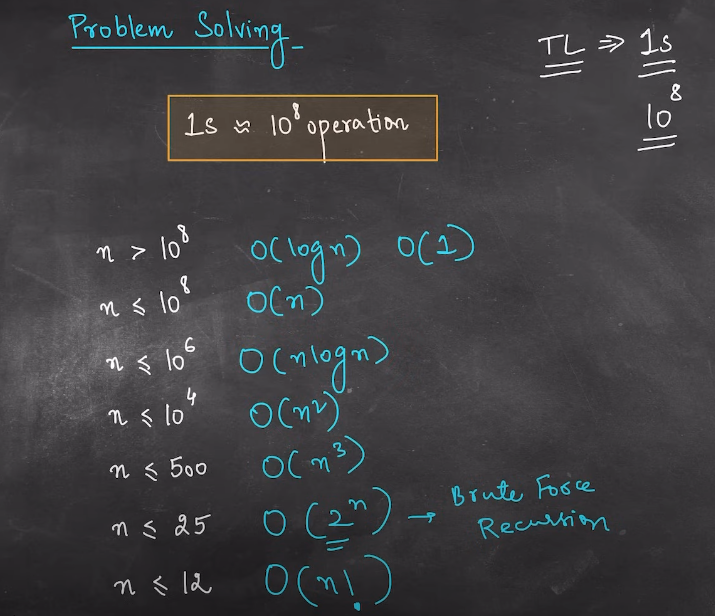 Problem Solving
TL ⇒ 1s
10⁸
1s ≈ 10⁸ operation
n > 10⁸ O(logn) O(1)
n ≤ 10⁸ O(n)
n ≤ 10⁶ O(nlogn)
n ≤ 10⁴ O(n²)
n ≤ 500 O(n³)
n ≤ 25 O(2ⁿ) → Brute Force
Recursion
n ≤ 12 O(n!)